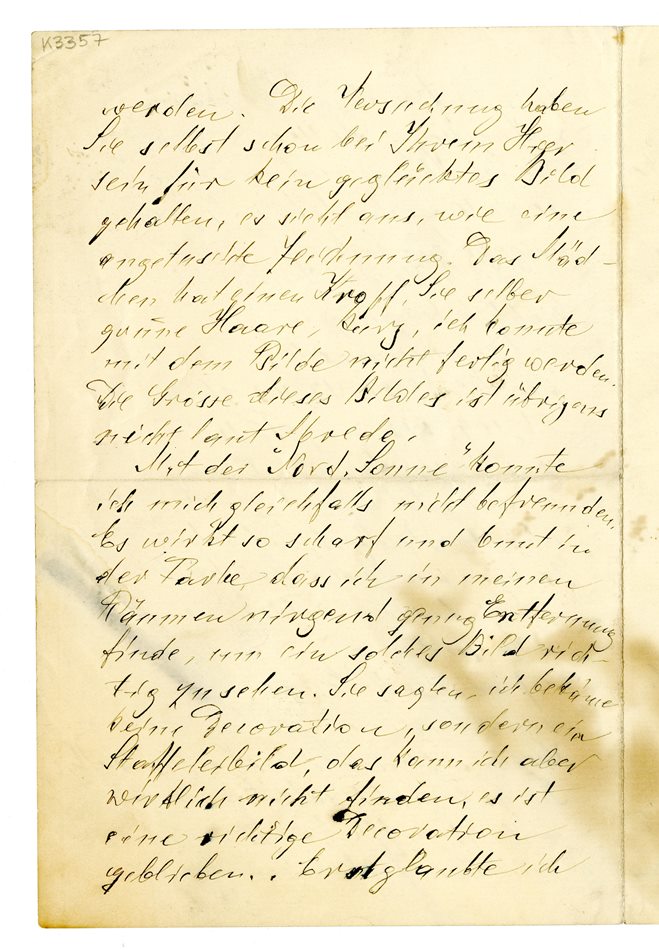 K3357
werden. Die Versuchung haben
Sie selbst schon bei Ihrem Hier
sein für kein geglücktes Bild
gehalten, es sieht aus, wie eine
angetuschte Zeichnung. Das Mäd-
chen hat einen Kropf, Sie selber
grüne Haare, kurz, ich konnte
mit dem Bilde nicht fertig werden.
Die Grösse dieses Bildes ist übrigens
nicht laut Abrede.
Mit der "Nord. Sonne" konnte
ich mich gleichfalls nicht befreunden.
Es wirkt so scharf und bunt in
der Farbe, dass ich in meinen
Räumen nirgend genug Entfernung
finde, um ein solches Bild rich-
tig zu sehen. Sie sagten, ich bekäme
keine Decoration, sondern ein
Staffeleibild, das kann ich aber
wirklich nicht finden, es ist
eine richtige Decoration
geblieben. Erst glaubte ich